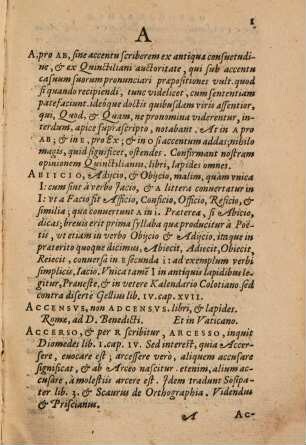 1
A
A, pro AB, sine accentu scriberem ex antiqua consuetudi-
ne, & ex Quinctiliani auctoritate, qui sub accentu
casuum suorum pronunciari præpositiones vult. quod
si quando recipiendi, tunc videlicet, cum sententiam
patefaciunt. ideoque doctis quibusdam viris assentior,
qui, Quod, & Quam, ne pronomina viderentur, in-
terdum, apice suprascripto, notabant. At in A pro
AB; & in E, pro Ex; & in O si accentum addas; nihilo
magis, quid significet, ostendes. Confirmant nostram
opinionem Quinctilianum, libri, lapides omnes.
ABIICIO, Adijcio, & Obijcio, malim, quàm vnica
I: cum sine à verbo Jacio, & A littera conuertatur in
I: vt a Facio fit Afficio, Conficio, Officio, Reficio, &
similia; qua conuertunt A in I. Præterea, si Abicio,
dicas; breuis erit prima syllaba quæ producitur à Poë-
tis, vt etiam in verbo Obijcio & Adijcio, itaque in
præterito quoque dicimus, Abiecit, Adiecit, Obiecit,
Reiecit, conuersa in E secunda I: ad exemplum verbi
simplicis, Iacio. Vnica tamē I in antiquis lapidibus le-
gitur, Præneste, & in vetere Kalendario Colotiano. sed
contra disertè Gellius lib. IV. cap. XVII.
ACCENSVS, non ADCENSVS. libri, & lapides.
Rome, ad D. Benedicti. Et in Vaticano.
ACCERSO, & per R scribitur, ARCESSO, inquit
Diomedes lib. I. cap. IV. Sed interest, quia Accer-
sere, euocare est; arcessere verò, aliquem accusare
significat, & ab Arceo nascitur. etenim, alium ac-
cusare, à molestiis arcere est. Idem tradunt Sosipa-
ter lib. 3. & Scaurus de Orthographia. Videndus
& Priscianus.
A Ac-